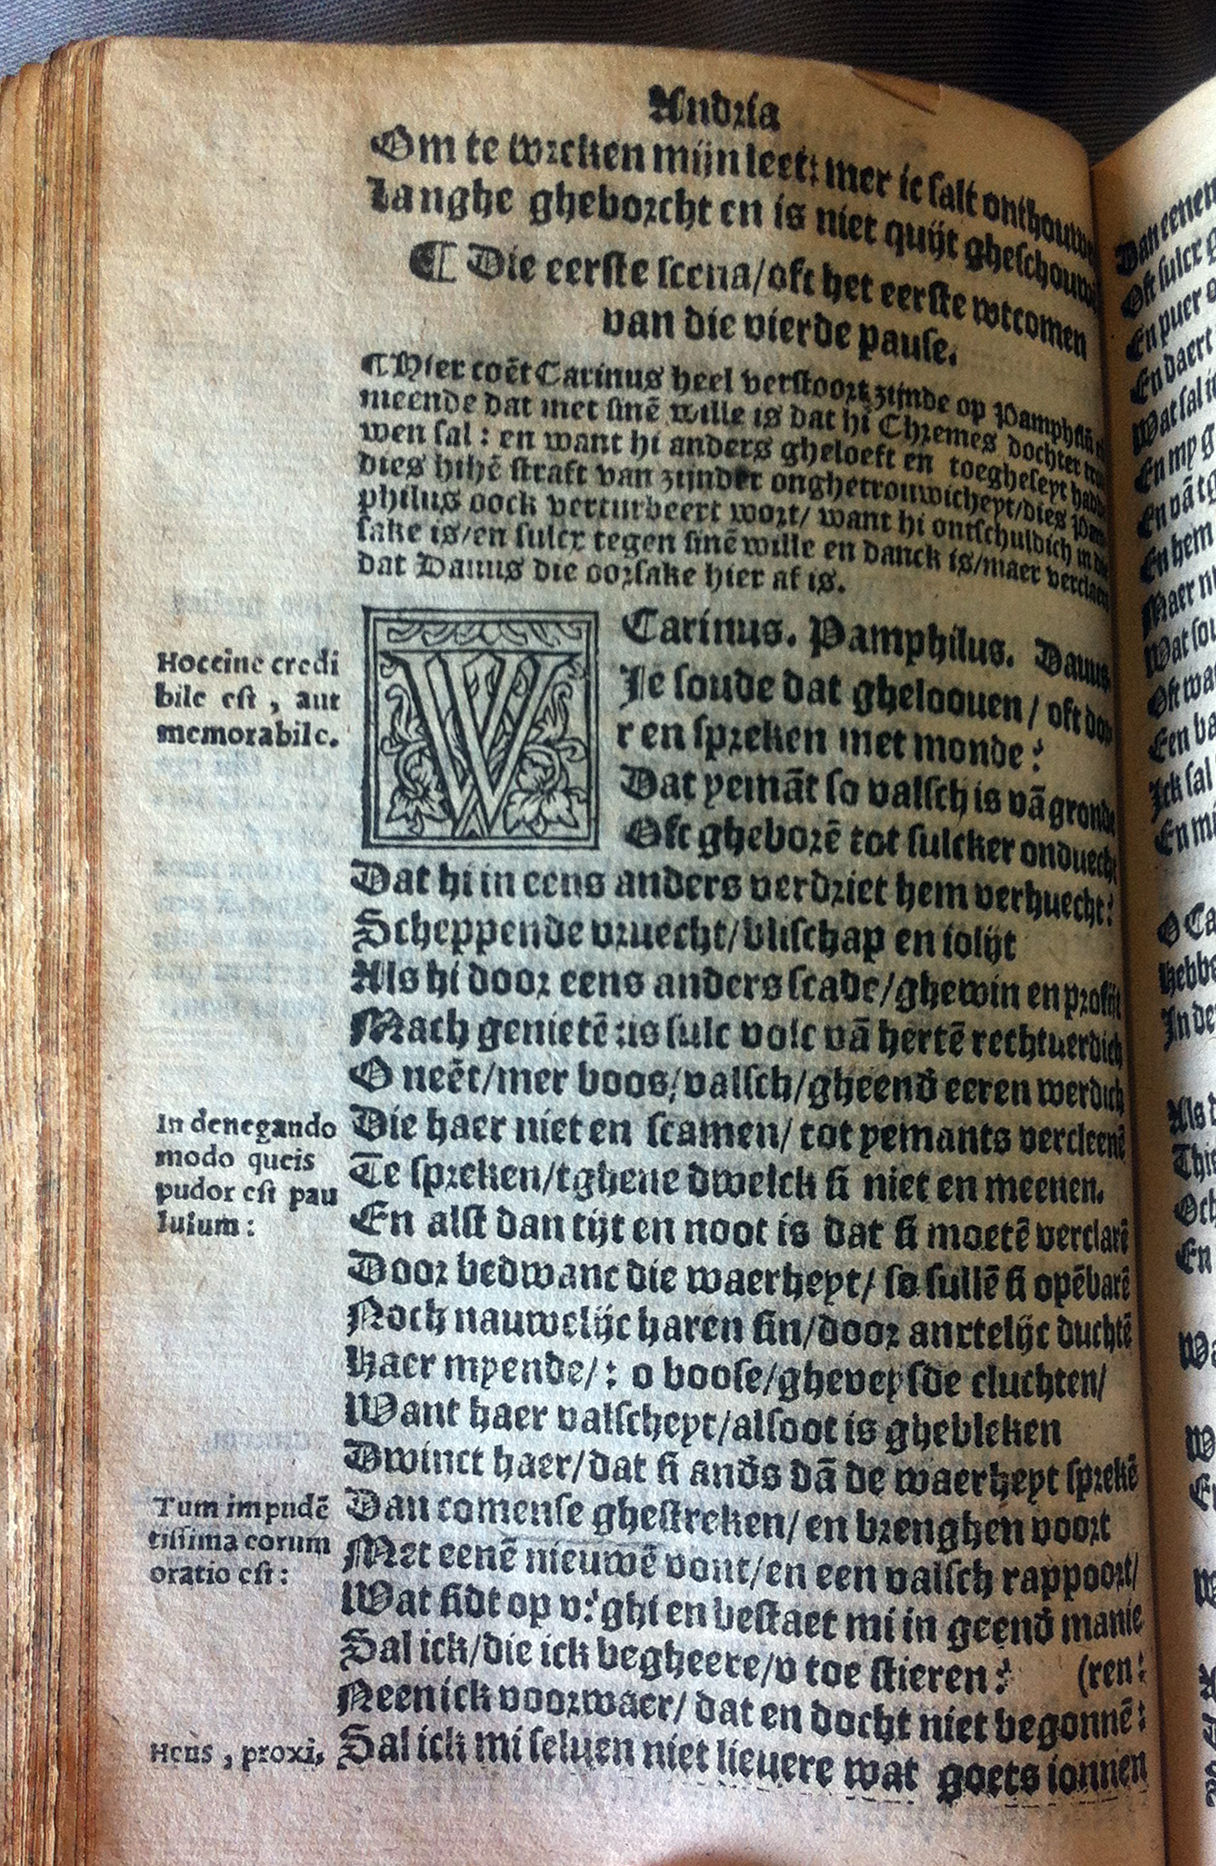 Andria
Om te wreken mijn leet: mer ic salt onthouwen
Langhe gheborcht en is niet quijt gheschouwen
¶ Die eerste scena/oft het eerste wtcomen
van die vierde pause.
¶ Hier coēt Carinus heel verstoort zijnde op Pamphilū
meende dat met sinē wille is dat hi Chremes dochter trou
wen sal : en want hi anders gheloeft en toegheseyt hadde
dies hihē straft van zijnder onghetrouwicheyt/dies Pam
philus oock verturbeert wort/ want hi ontschuldich in die
sake is/en sulcx tegen sinē wille en danck is/maer verclaert
dat Dauus die oorsake hier af is.
Carinus. Pamphilus. Dauus.
Hoccine credi
bile est , aut
memorabile.
WIe soude dat gheloouen / oft doo
r en spreken met monde :
Dat yemāt so valsch is vā gronde
Oft gheborē tot sulcker onduecht
Dat hi in eens anders verdriet hem verhuecht:
Scheppende vruecht/blischap en iolijt
Als hi door eens anders scade/ghewin en profijt
Mach genietē :is sulc volc vā hertē rechtuerdich
O neēt/mer boos/valsch/gheend eeren werdich
In denegando
modo queis
pudor est pau
lulum :
Die haer niet en scamen/ tot yemants vercleenē
Te spreken/tghene dwelck si niet en meenen.
En alst dan tijt en noot is dat si moetē verclarē
Door bedwanc die waerheyt/ so sullē si opēbarē
Noch nauwelijc haren sin/door anctelijc duchtē
Haer myende/: o boose/gheveysde cluchten/
Want haer valscheyt/alsoot is ghebleken
Dwinct haer/dat si anđs dā de waerheyt sprekē
Tum impudē
tissima eorum
oratio est :
Dan comense ghestreken/ en brenghen voort
Met eenē nieuwē vont/en een valsch rappoort/
Wat sidt op v: ghi en bestaet mi in geenđ manie
Sal ick/die ick begheere/v toe stieren: (ren:
Neen ick voorwaer/ dat en docht niet begonnē:
Heus , proxi,
Sal ick mi seluen niet lieuere wat goets ionnen